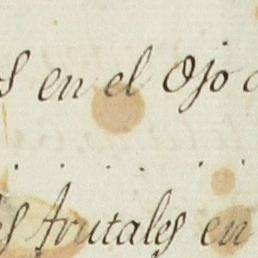 s en el Ojo
es frutales en